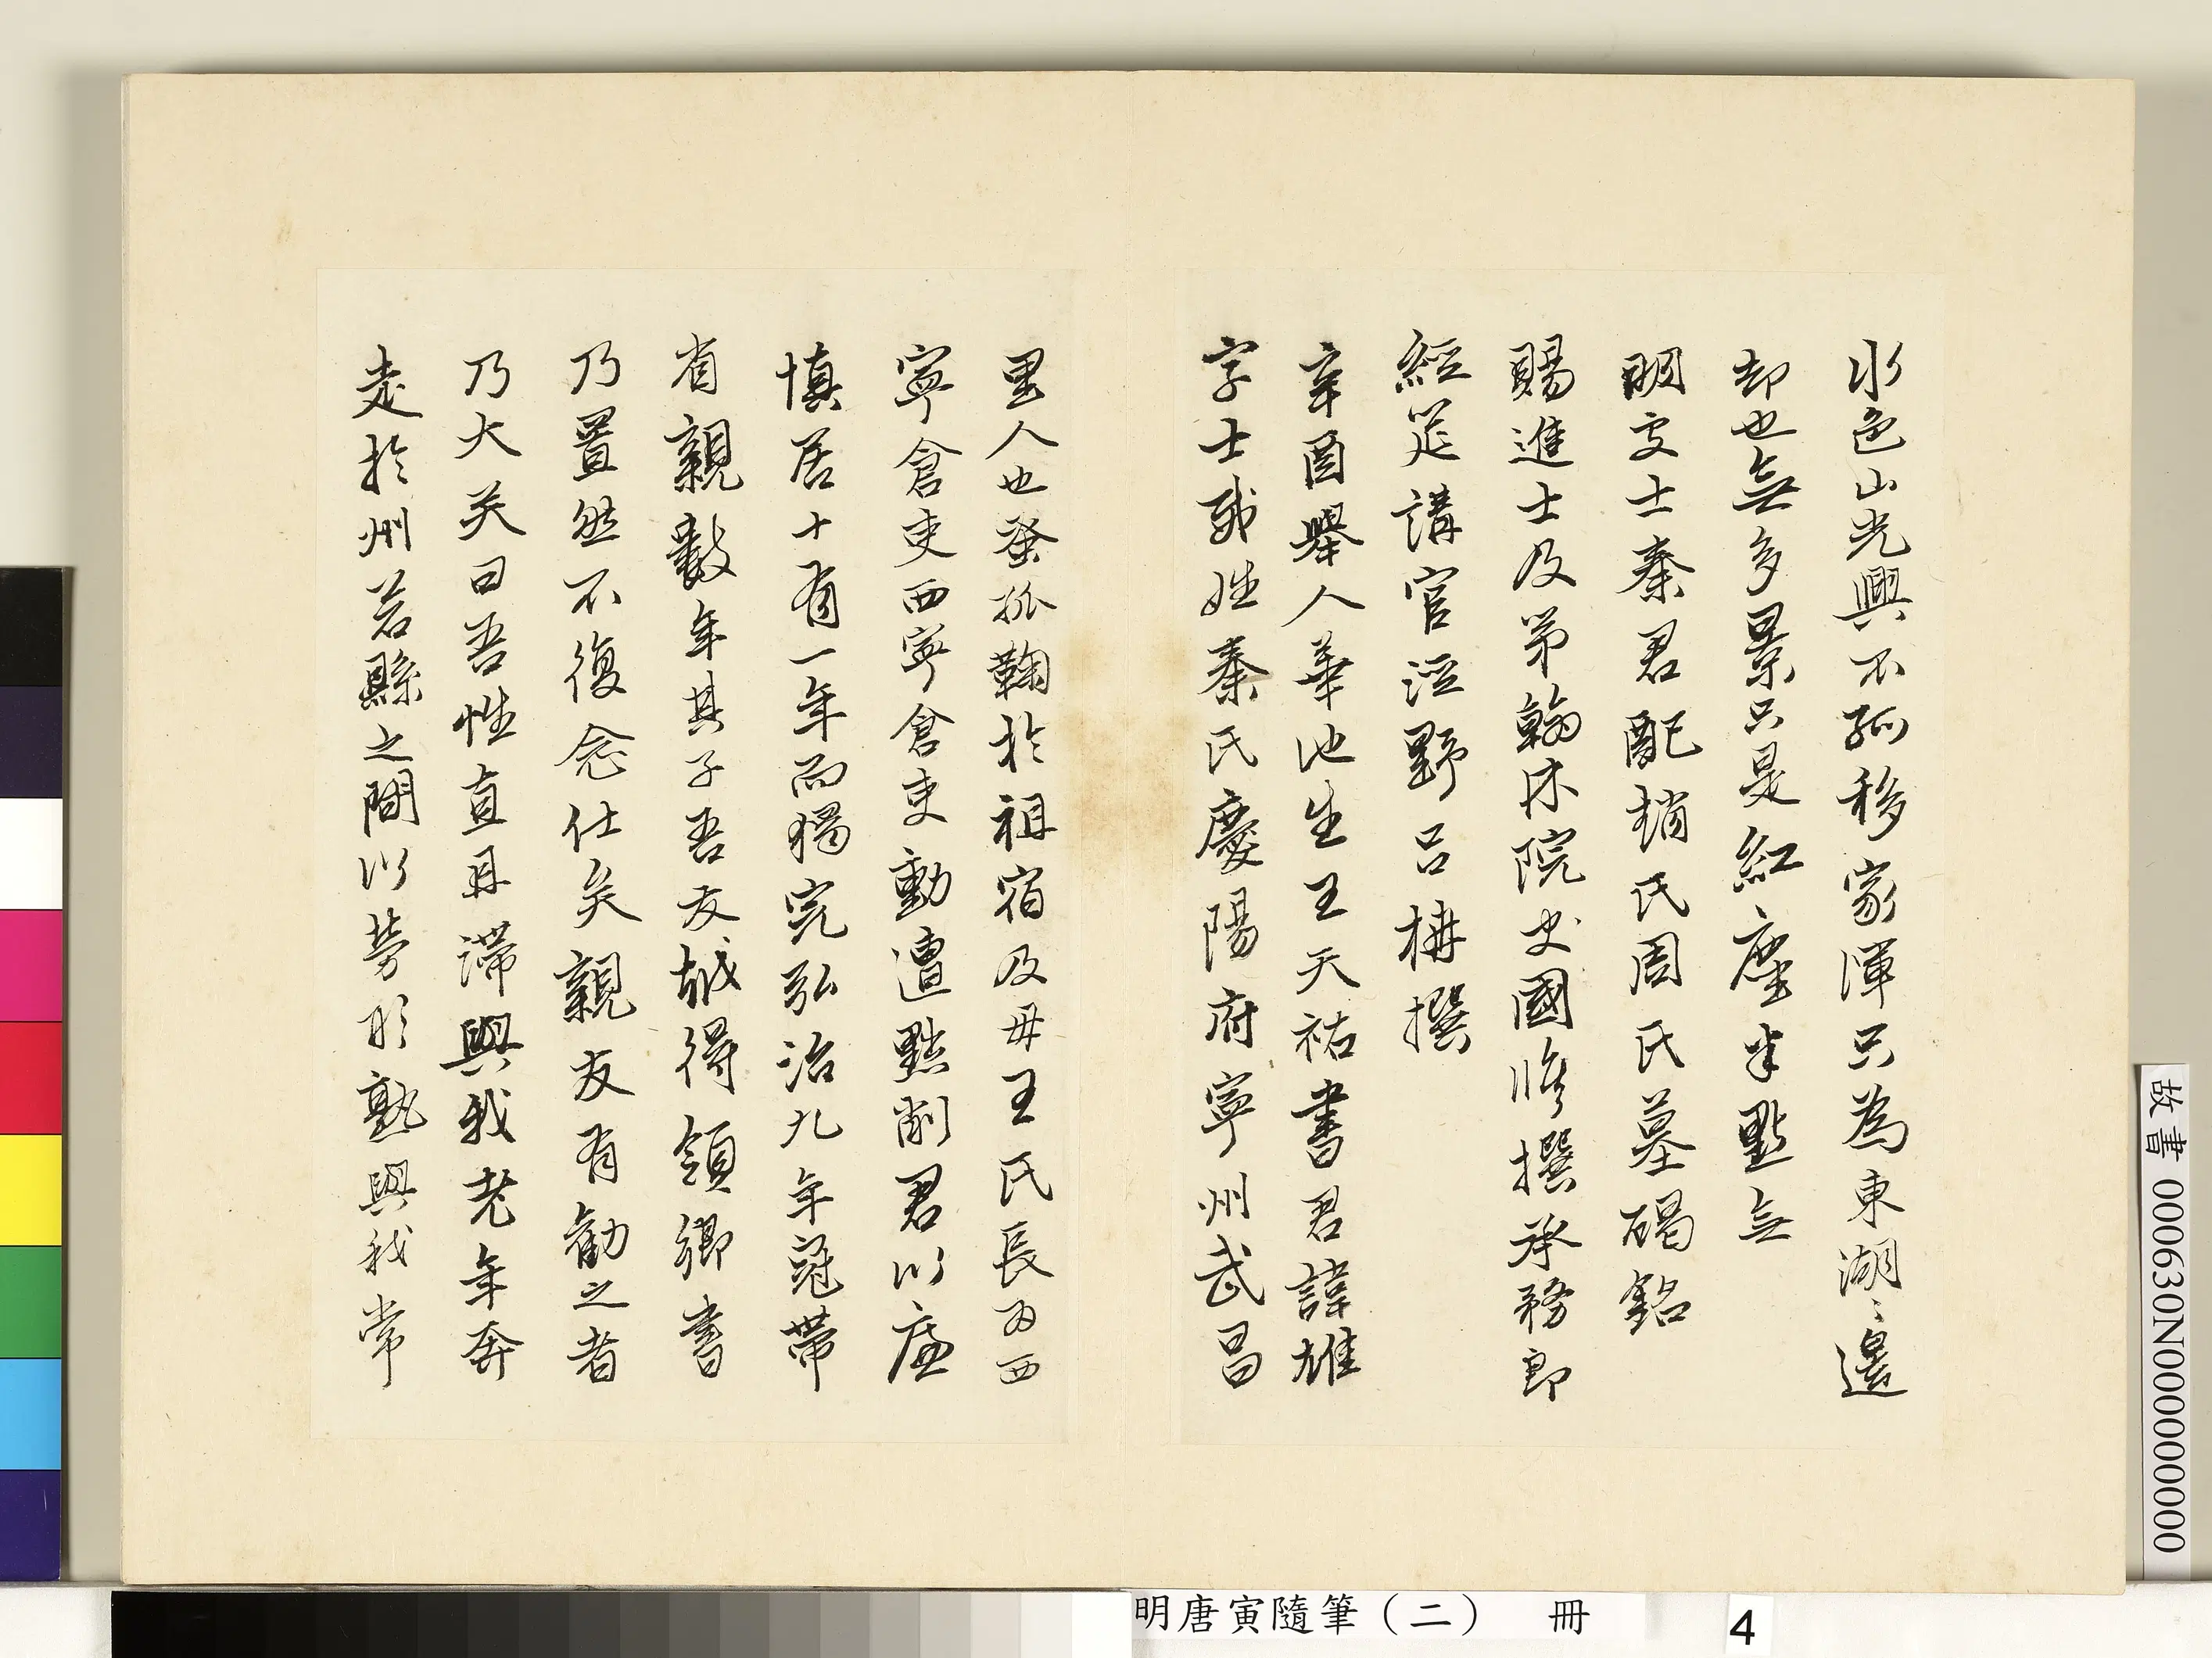 水色山光興不孤移家渾只為東湖〻邊
却也無多景只是紅塵半點無
明處士秦君配趙氏周氏墓碣銘
賜進士及第翰林院史國脩撰承務郎
經筵講官涇野呂柟撰
辛酉舉人華池生王天祐書君諱雄
字士威姓秦氏慶陽府寧州武昌
里人也蚤孤鞠於祖宿及母王氏長為西
寧倉吏西寧倉吏動遭黜削君以廉
慎居十有一年而獨完弘治九年冠帶
省親數年其子吾友鉞得領鄉書
乃置然不復念仕矣親友有勸之者
乃大笑曰吾性直且滯與我老年奔
走於州若縣之間以勞形孰與我常
明唐寅隨筆（二）　冊
4
故書 000630N000000000